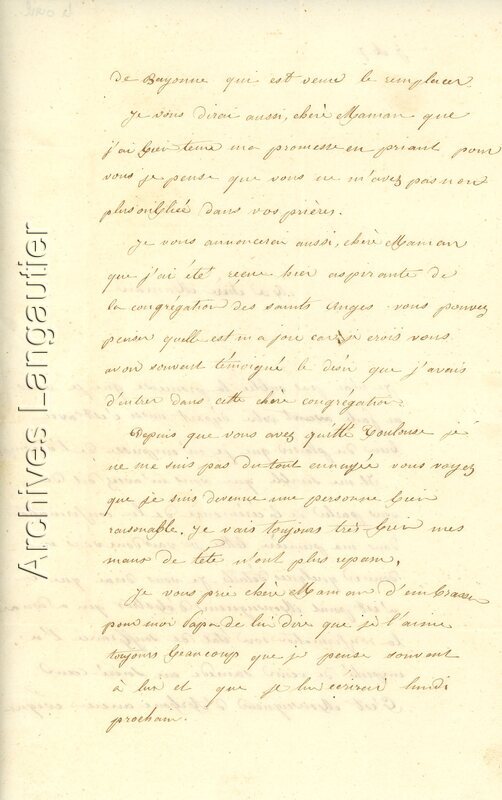 de Bayonne qui est venu le remplacer.
Je vous dirai aussi, chère Maman que
j'ai bien tenu ma promesse en priant pour
vous je pense que vous ne m'avez pas non
plus oubliée dans vos prières.
Je vous annoncerai aussi, chère Maman
que j'ai été reçue hier aspirante de
la congrégation des saints Anges vous pouvez
penser quelle est ma joie car je crois vous
avoir souvent témoigné le désir que j'avais
d'entrer dans cette chère congrégation.
Depuis que vous avez quitté Toulouse je
ne me suis pas du tout ennuyée vous voyez
que je suis devenue une personne bien
raisonable. Je vais toujours très bien mes
maux de tête n'ont plus reparu,
Je vous prie chère Maman d'embrasser
pour moi Papa de lui dire que je l'aime
toujours beaucoup que je pense souvent
à lui et que je lui écrirai lundi
prochain.
Archives Langautier